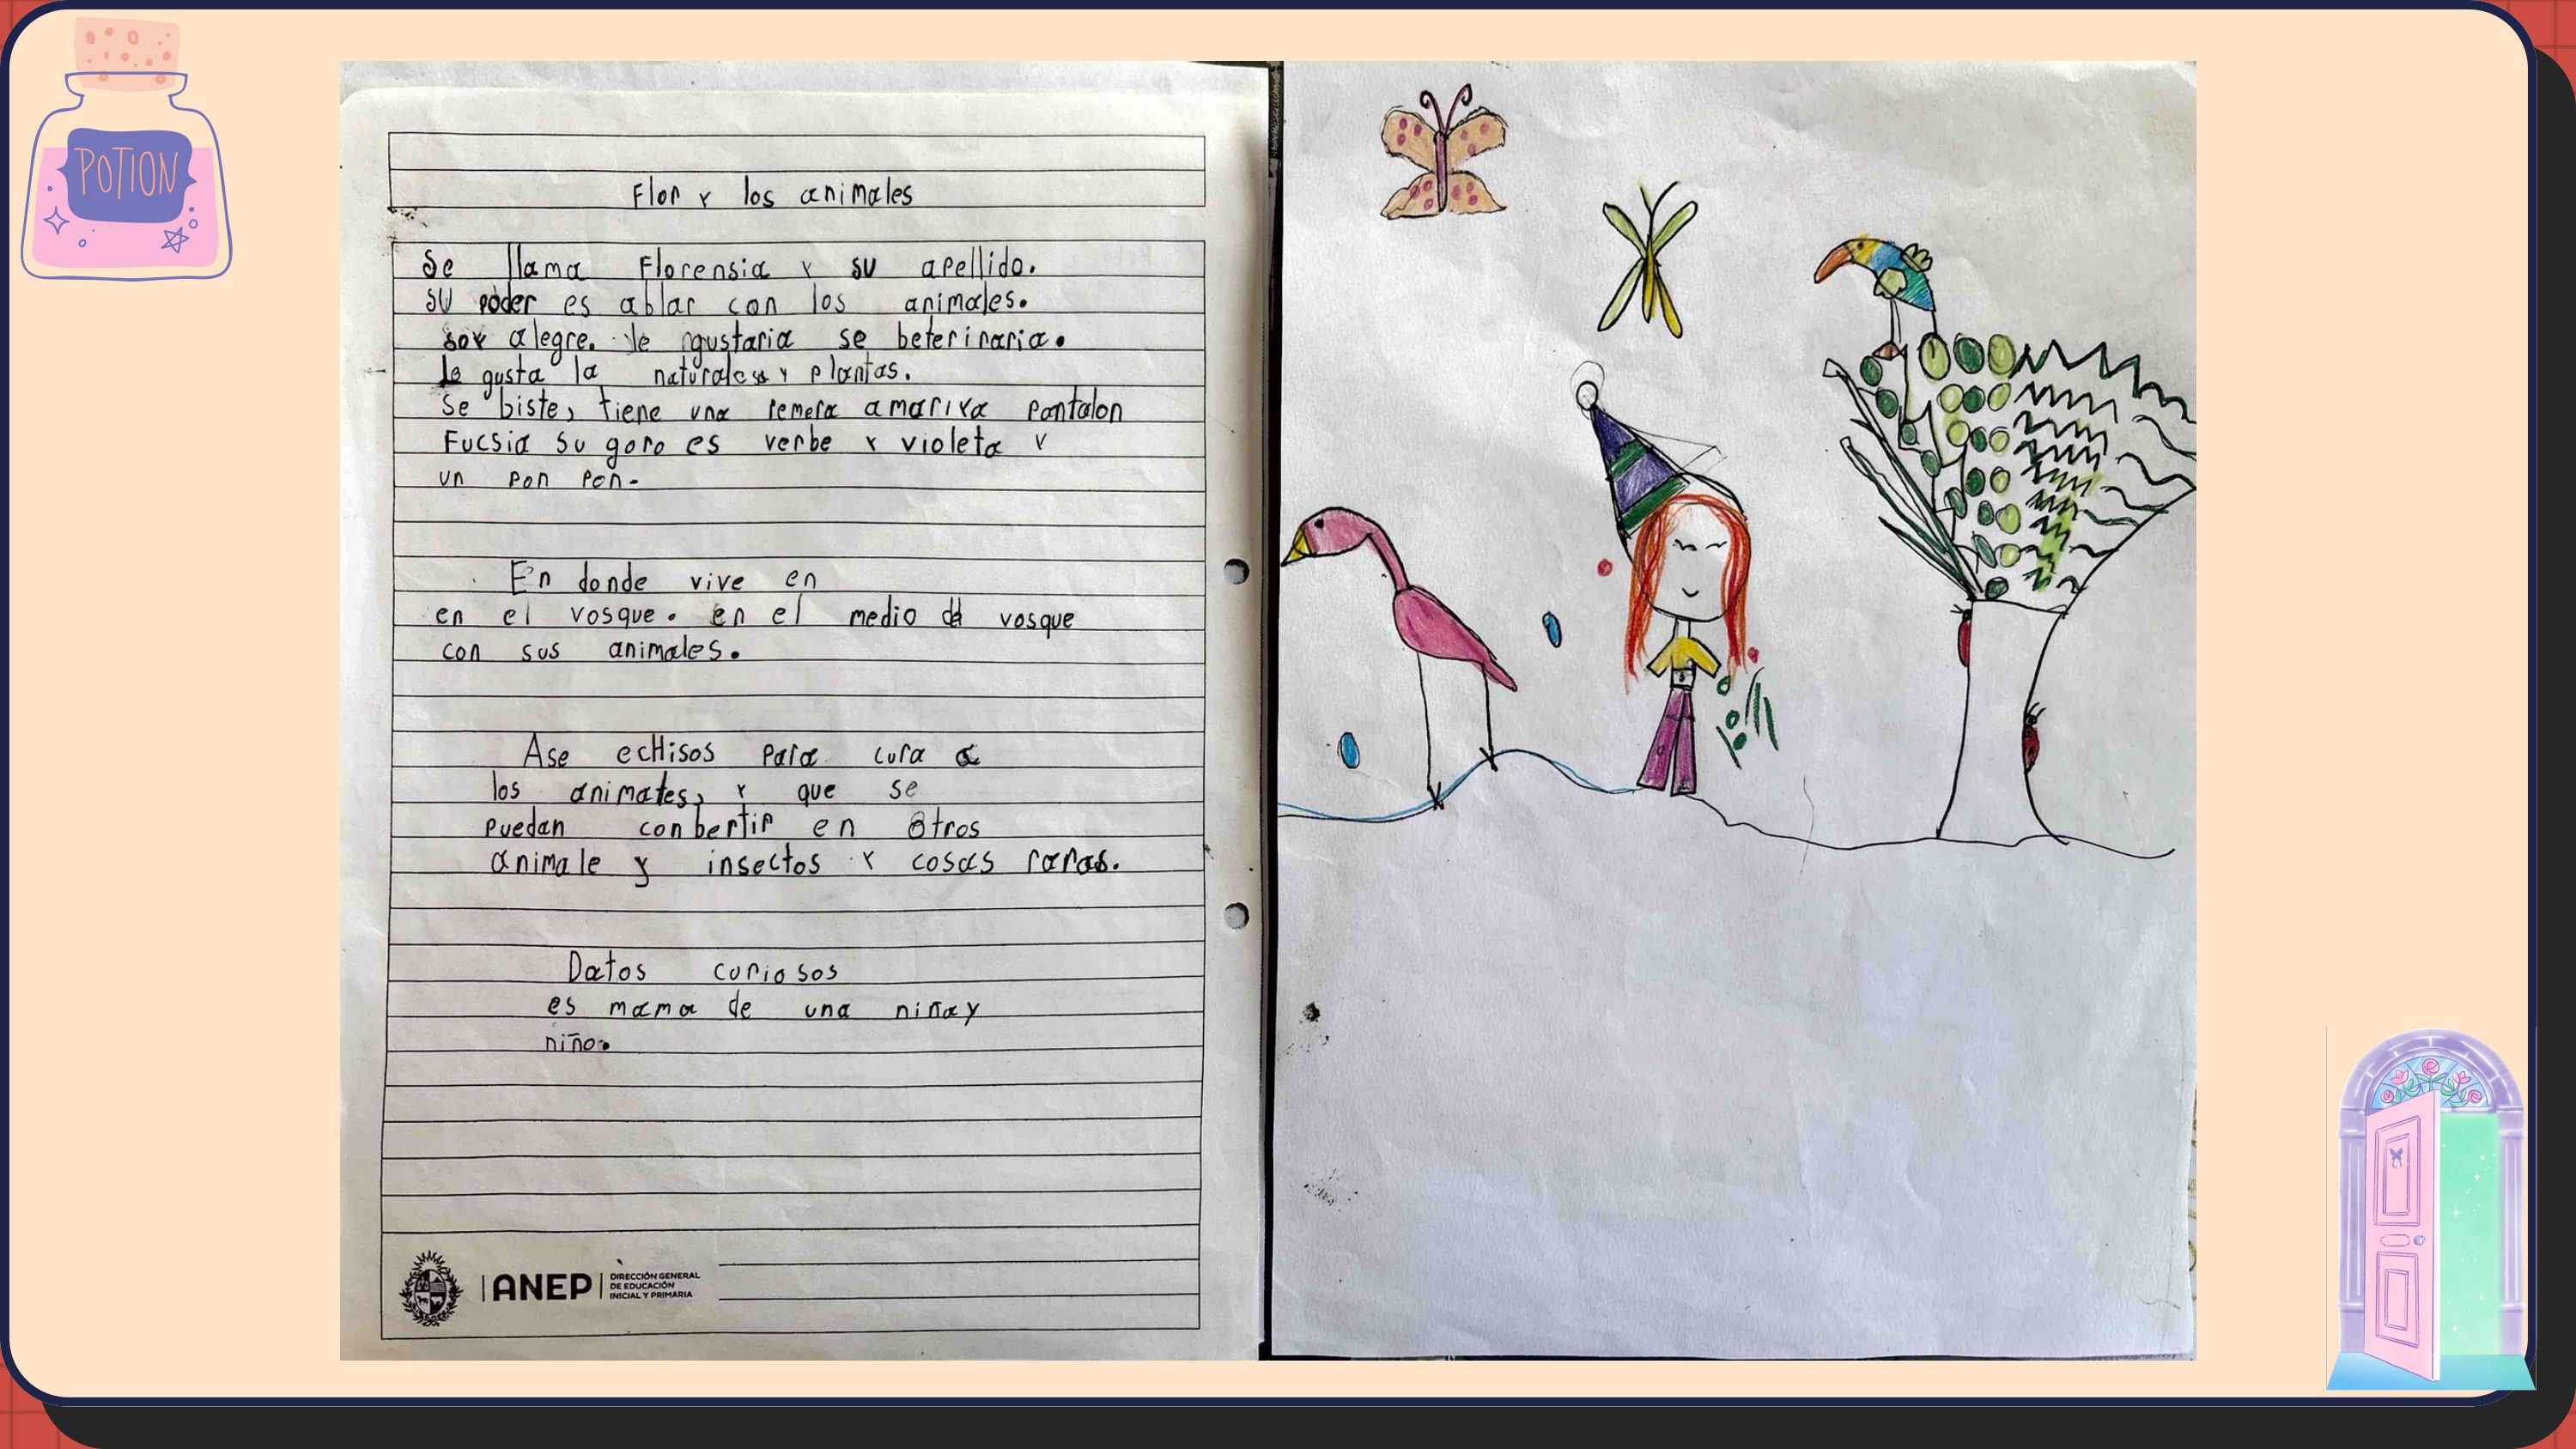 POTION
Flor y los animales
Se llama Florensia y su apellido.
su poder es ablar con los animales.
soy alegre. le gustaria se beterinaria.
le gusta la y plantas.
Se biste, tiene una remera amariya pantalon
Fucsia su goro es verbe y violeta y
un pon pon.
En donde vive en
en el vosque. en el medio del vosque
con sus animales.
Ase echisos para cura a
los animales, y que se
puedan conbertir en otros
animale y insectos y cosas raras.
Datos curiosos
es mama de una niña y
niño.
ANEP
DIRECCIÓN GENERAL
DE EDUCACIÓN
INICIAL Y PRIMARIA